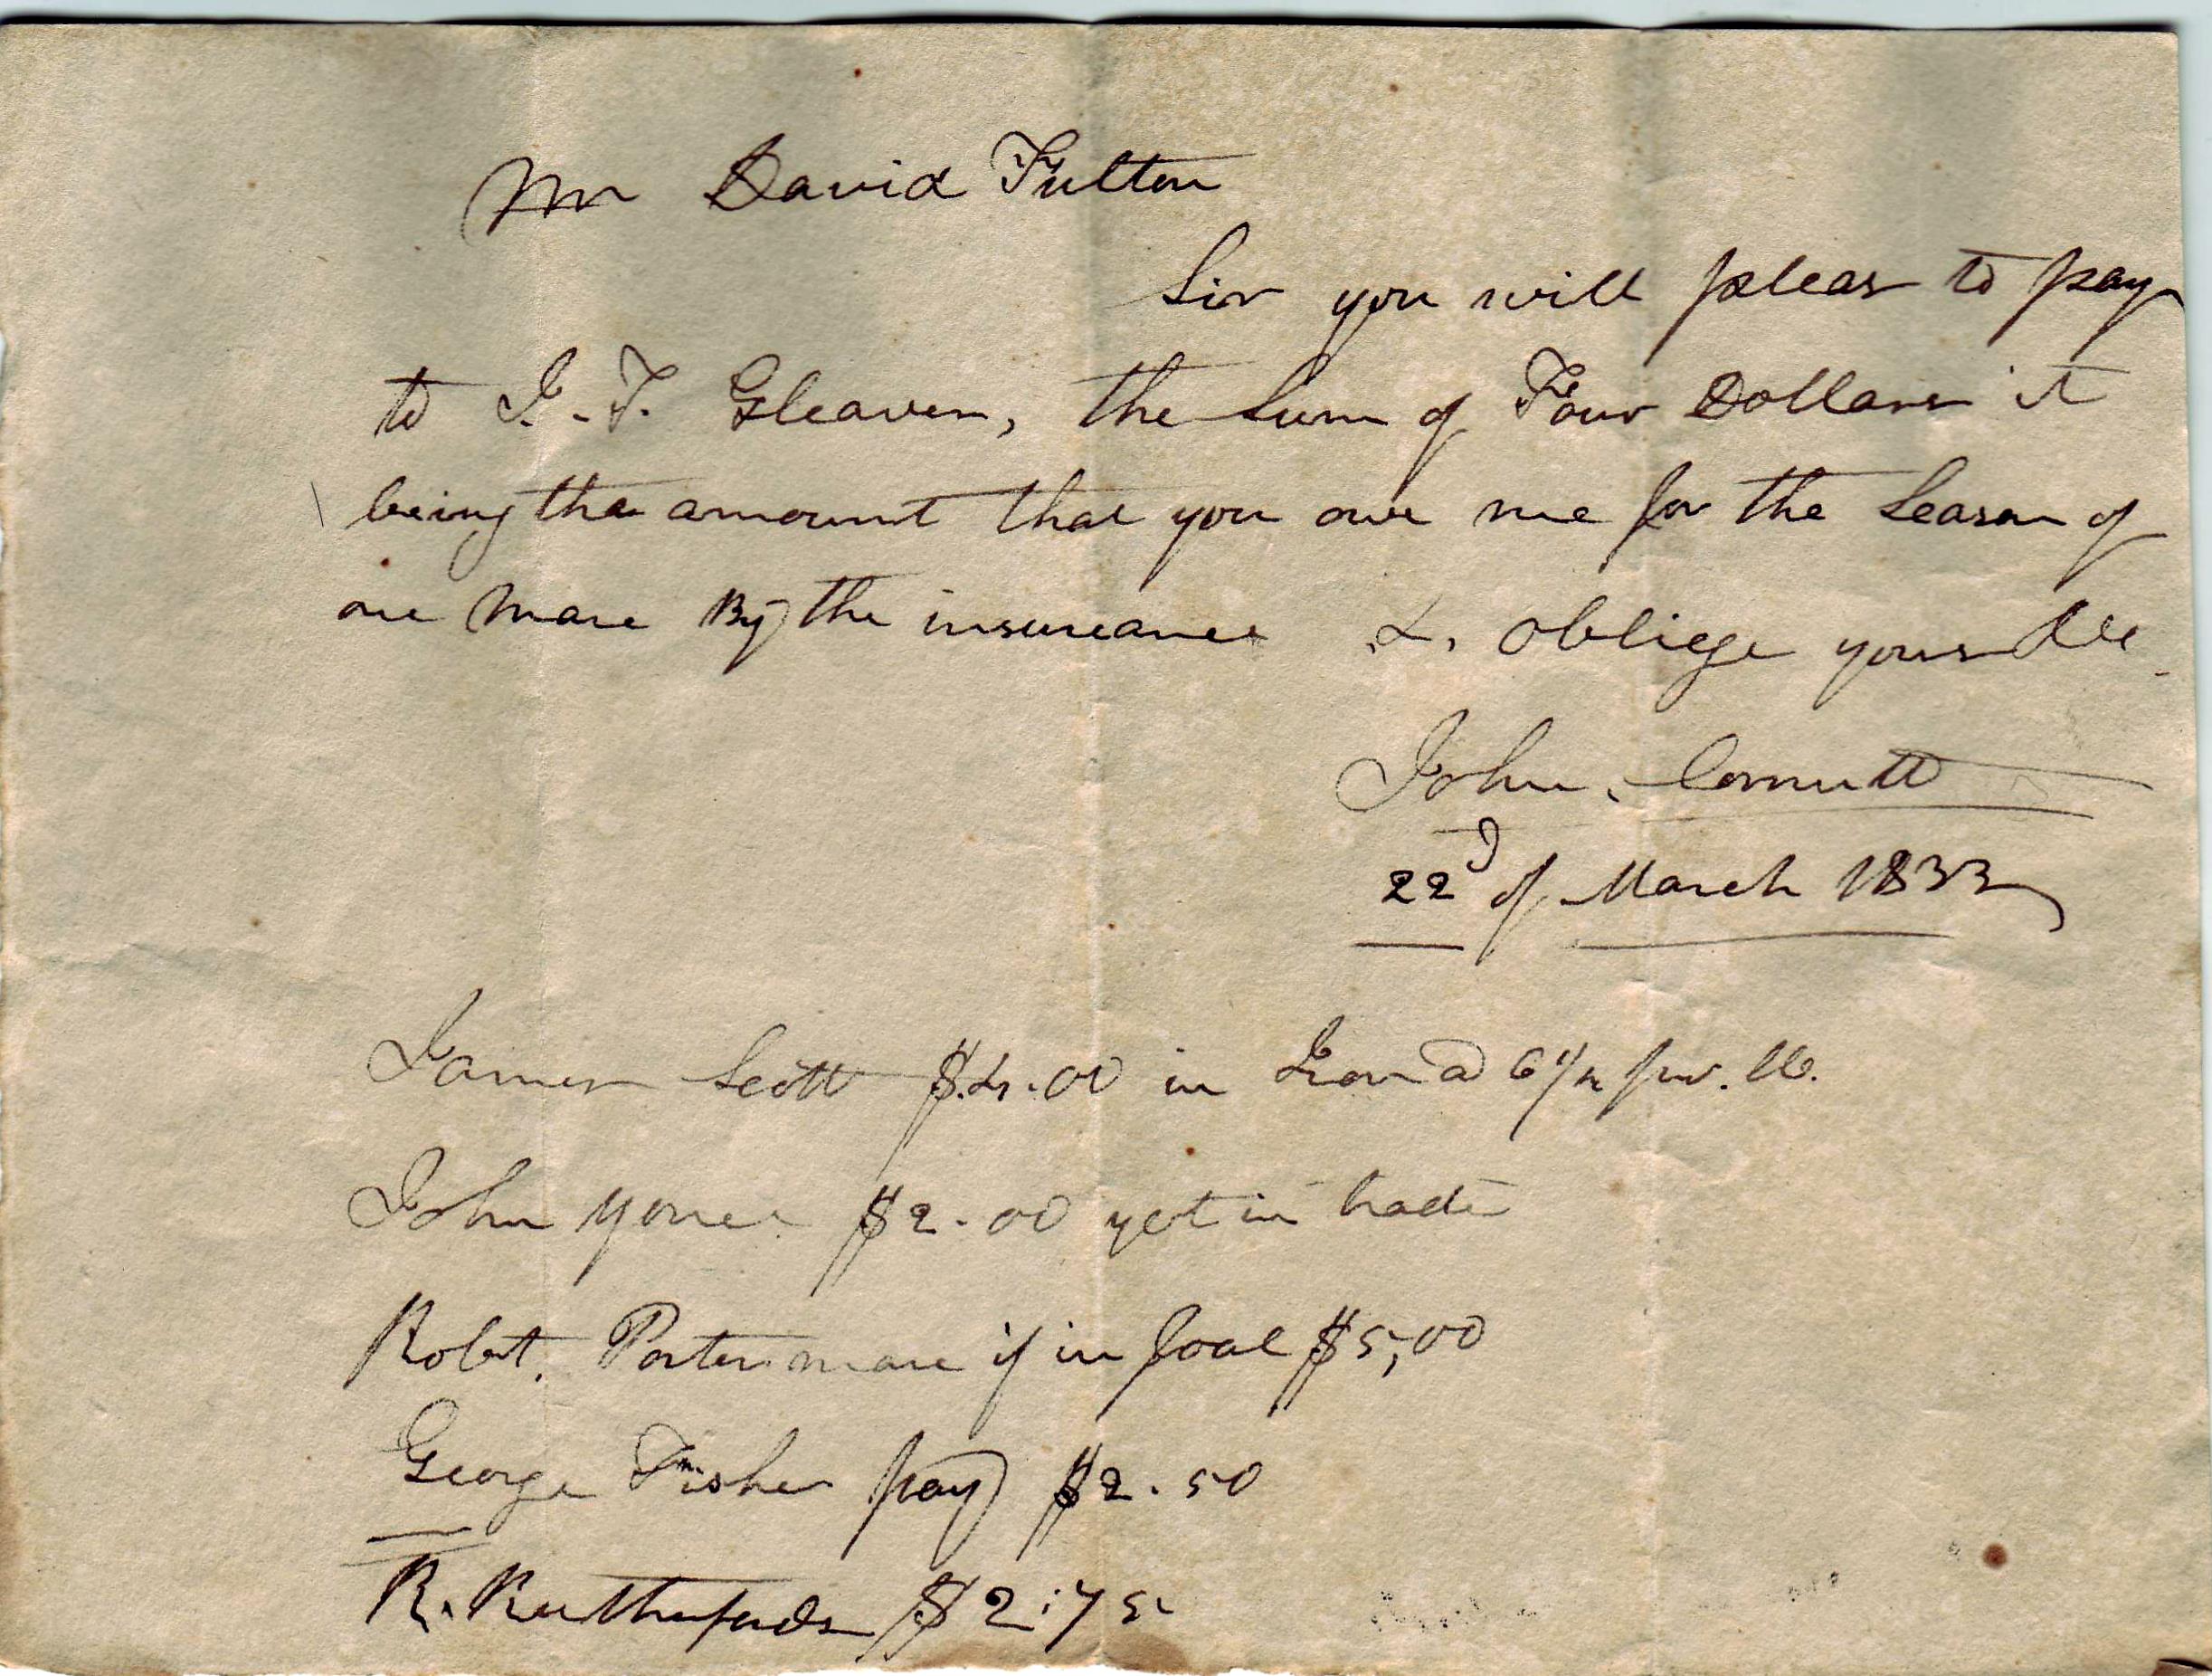 Mr David Fulton
Sir you will pleas to pay
to J. T. Gleaves, the Sum of Four Dollars it
being the amount that you owe me for the Season of
one mare By the insureance &. obliege yours &c
John Cornutt
22d of March 1833
James Scott $4.00 in Iron @ 6 1/4 pr. lb.
John $2.00 yet in trade
Robt. Porters mare if in foal $5,00
George Fisher pay $2.50
R. Rutherfords $2:75